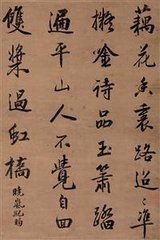 藕花香裏路迢〻準
擬詩品玉簫踏
遍平山人不覺自回
雙槳過虹橋
曉嵐紀昀